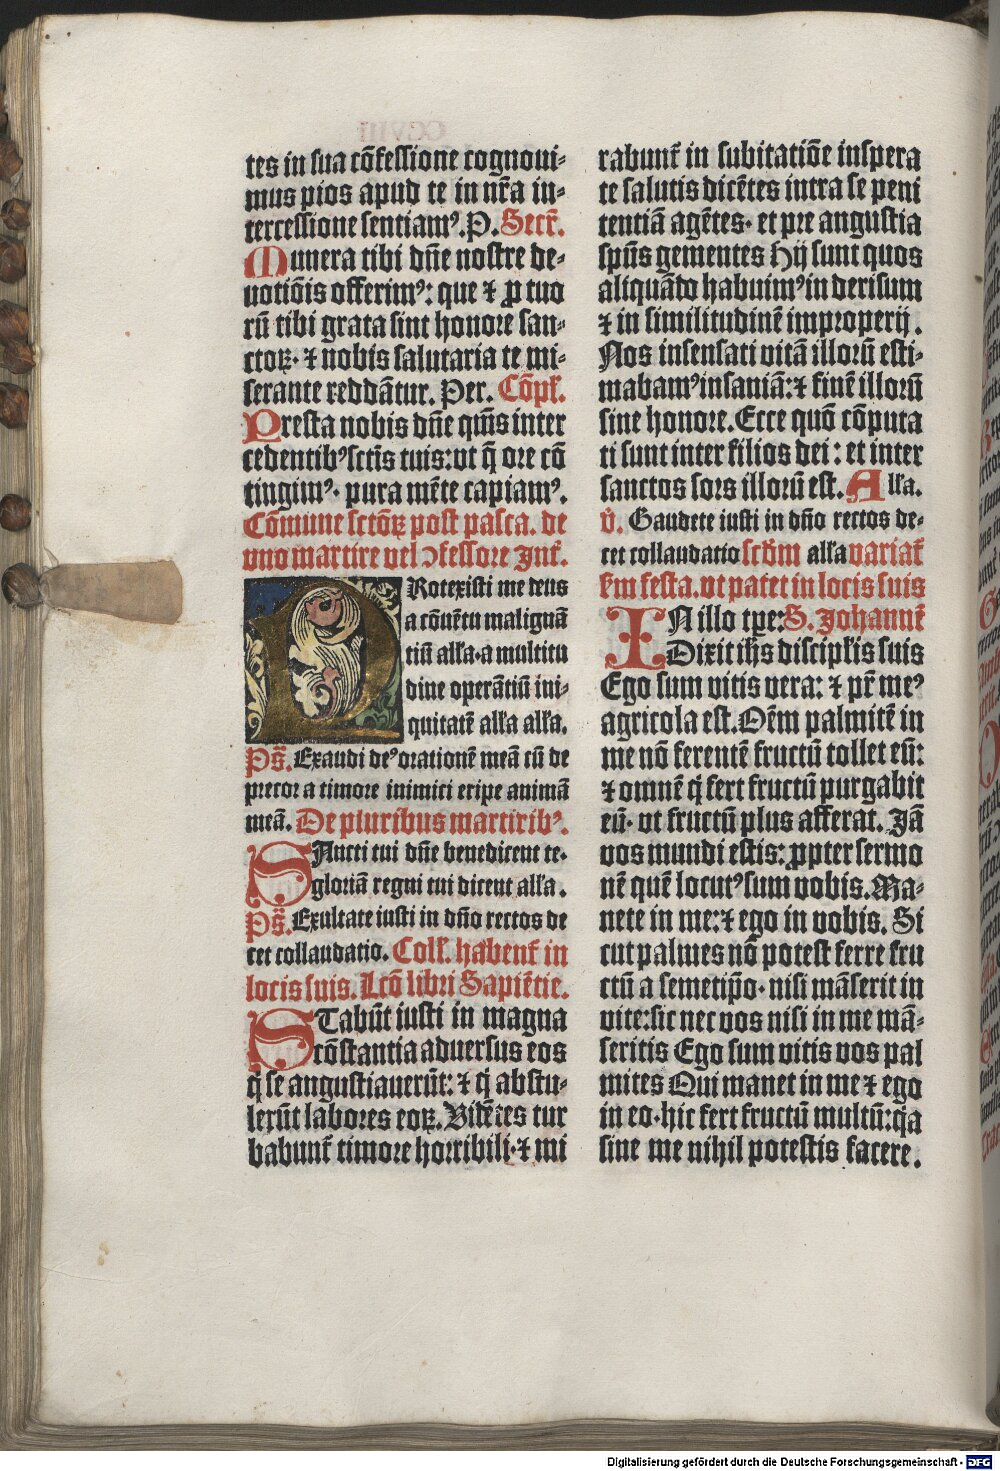 tes in sua cõfessione cognoui⸗
mus pios apud te in nr̃a in⸗
tercessione sentiamꝰ. P. Secr̃.
Munera tibi dñe nostre de⸗
uotiõis offerimꝰ: que ⁊ ꝓ tuo
rũ tibi grata sint honore san⸗
ctoꝝ. ⁊ nobis salutaria te mi⸗
serante reddãtur. Per. Cõpl̃.
Presta nobis dñe qm̃s inter
cedentibꝰ sctĩs tuis: vt q̃ ore cõ
tingimꝰ. pura mẽte capiamꝰ.
Cõmune sctõꝝ post pasca. de
vno martire vel ↄfessore Int̃.
PRotexisti me deus
a cõuẽtu malignã
tiũ all'a. a multitu
dine operãtiũ ini⸗
quitatẽ all'a all'a.
Ps̃. Exaudi deꝰ orationẽ meã cũ de
precor a timore inimici eripe animã
meã. De pluribus martiribꝰ.
SAncti tui dñe benedicent te.
gloriã regni tui dicent all'a.
Ps̃. Exultate iusti in dño rectos de
cet collaudatio. Coll'. habent̃ in
locis suis. Lcõ libri Sapiẽtie.
STabũt iusti in magna
cõstantia aduersus eos
q̇ se angustiauerũt: ⁊ q̇ abstu⸗
lerũt labores eoꝝ. Vidẽtes tur
babunt̃ timore horribili. ⁊ mi
rabunt̃ in subitatiõe inspera
te salutis dicẽtes intra se peni
tentiã agẽtes. et pre angustia
spũs gementes Hij sunt quos
aliquãdo habuimꝰ in derisum
⁊ in similitudinẽ improperij.
Nos insensati vitã illorũ esti⸗
mabamꝰ insaniã: ⁊ finẽ illorũ
sine honore. Ecce quõ cõputa
ti sunt inter filios dei: et inter
sanctos sors illorũ est. All'a.
v̉. Gaudete iusti in dño rectos de⸗
cet collaudatio scd̃m all'a variat̃
sm̃ festa. vt patet in locis suis
IN illo tpe: S. Johannẽ
Dixit ihs̃ discipl'is suis
Ego sum vitis vera: ⁊ pr̃ meꝰ
agricola est. Oẽm palmitẽ in
me nõ ferentẽ fructũ tollet eũ:
⁊ omnẽ q̇ fert fructũ purgabit
eũ. vt fructũ plus afferat. Jã
vos mundi estis: ꝓpter sermo
nẽ quẽ locutꝰ sum vobis. Ma⸗
nete in me: ⁊ ego in vobis. Si
cut palmes nõ potest ferre fru
ctũ a semetip̃o. nisi mãserit in
vite: sic nec vos nisi in me mã⸗
seritis Ego sum vitis vos pal
mites Qui manet in me ⁊ ego
in eo. hic fert fructũ multũ: q̇a
sine me nihil potestis facere.
Digitalisierung gefördert durch die Deutsche Forschungsgemeinschaft - DFG